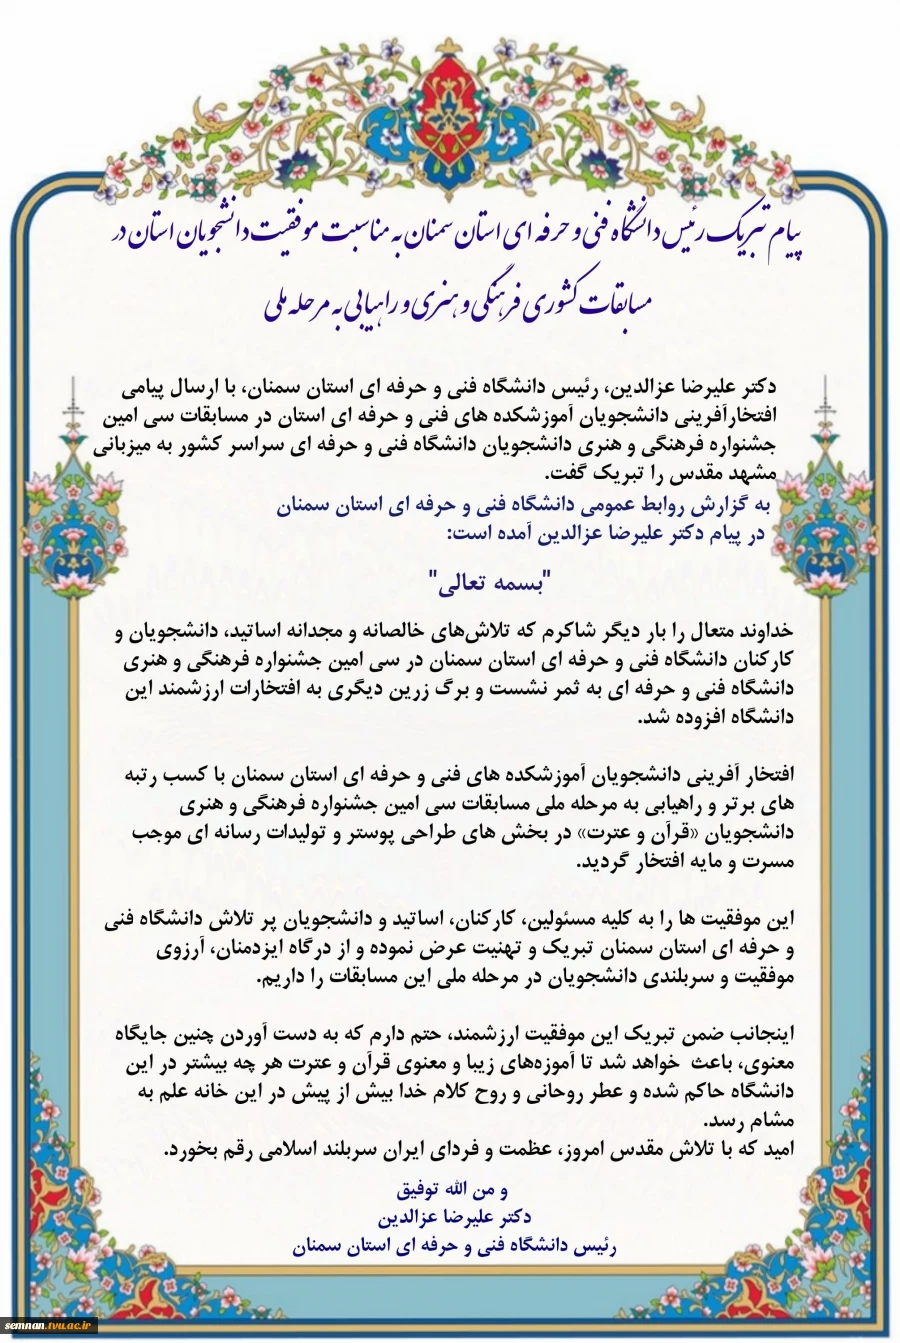 پیام تبریک رئیس دانشگاه فنی و حرفه ای استان سمنان به مناسبت موفقیت دانشجویان استان در
مسابقات کشوری فرهنگی و هنری و راهیابی به مرحله ملی
دکتر علیرضا عزالدین، رئیس دانشگاه فنی و حرفه ای استان سمنان، با ارسال پیامی
افتخارآفرینی دانشجویان آموزشکده های فنی و حرفه ای استان در مسابقات سی امین
جشنواره فرهنگی و هنری دانشجویان دانشگاه فنی و حرفه ای سراسر کشور به میزبانی
مشهد مقدس را تبریک گفت.
به گزارش روابط عمومی دانشگاه فنی و حرفه ای استان سمنان
در پیام دکتر علیرضا عزالدین آمده است:
"بسمه تعالی"
خداوند متعال را بار دیگر شاکرم که تلاش‌های خالصانه و مجدانه اساتید، دانشجویان و
کارکنان دانشگاه فنی و حرفه ای استان سمنان در سی امین جشنواره فرهنگی و هنری
دانشگاه فنی و حرفه ای به ثمر نشست و برگ زرین دیگری به افتخارات ارزشمند این
دانشگاه افزوده شد.
افتخار آفرینی دانشجویان آموزشکده های فنی و حرفه ای استان سمنان با کسب رتبه
های برتر و راهیابی به مرحله ملی مسابقات سی امین جشنواره فرهنگی و هنری
دانشجویان «قرآن و عترت» در بخش های طراحی پوستر و تولیدات رسانه ای موجب
مسرت و مایه افتخار گردید.
این موفقیت ها را به کلیه مسئولین، کارکنان، اساتید و دانشجویان پر تلاش دانشگاه فنی
و حرفه ای استان سمنان تبریک و تهنیت عرض نموده و از درگاه ایزدمنان، آرزوی
موفقیت و سربلندی دانشجویان در مرحله ملی این مسابقات را داریم.
اینجانب ضمن تبریک این موفقیت ارزشمند، حتم دارم که به دست آوردن چنین جایگاه
معنوی، باعث خواهد شد تا آموزه‌های زیبا و معنوی قرآن و عترت هر چه بیشتر در این
دانشگاه حاکم شده و عطر روحانی و روح کلام خدا بیش از پیش در این خانه علم به
مشام رسد.
امید که با تلاش مقدس امروز، عظمت و فردای ایران سربلند اسلامی رقم بخورد.
و من الله توفیق
دکتر علیرضا عزالدین
رئیس دانشگاه فنی و حرفه ای استان سمنان
semnan.tvu.ac.ir